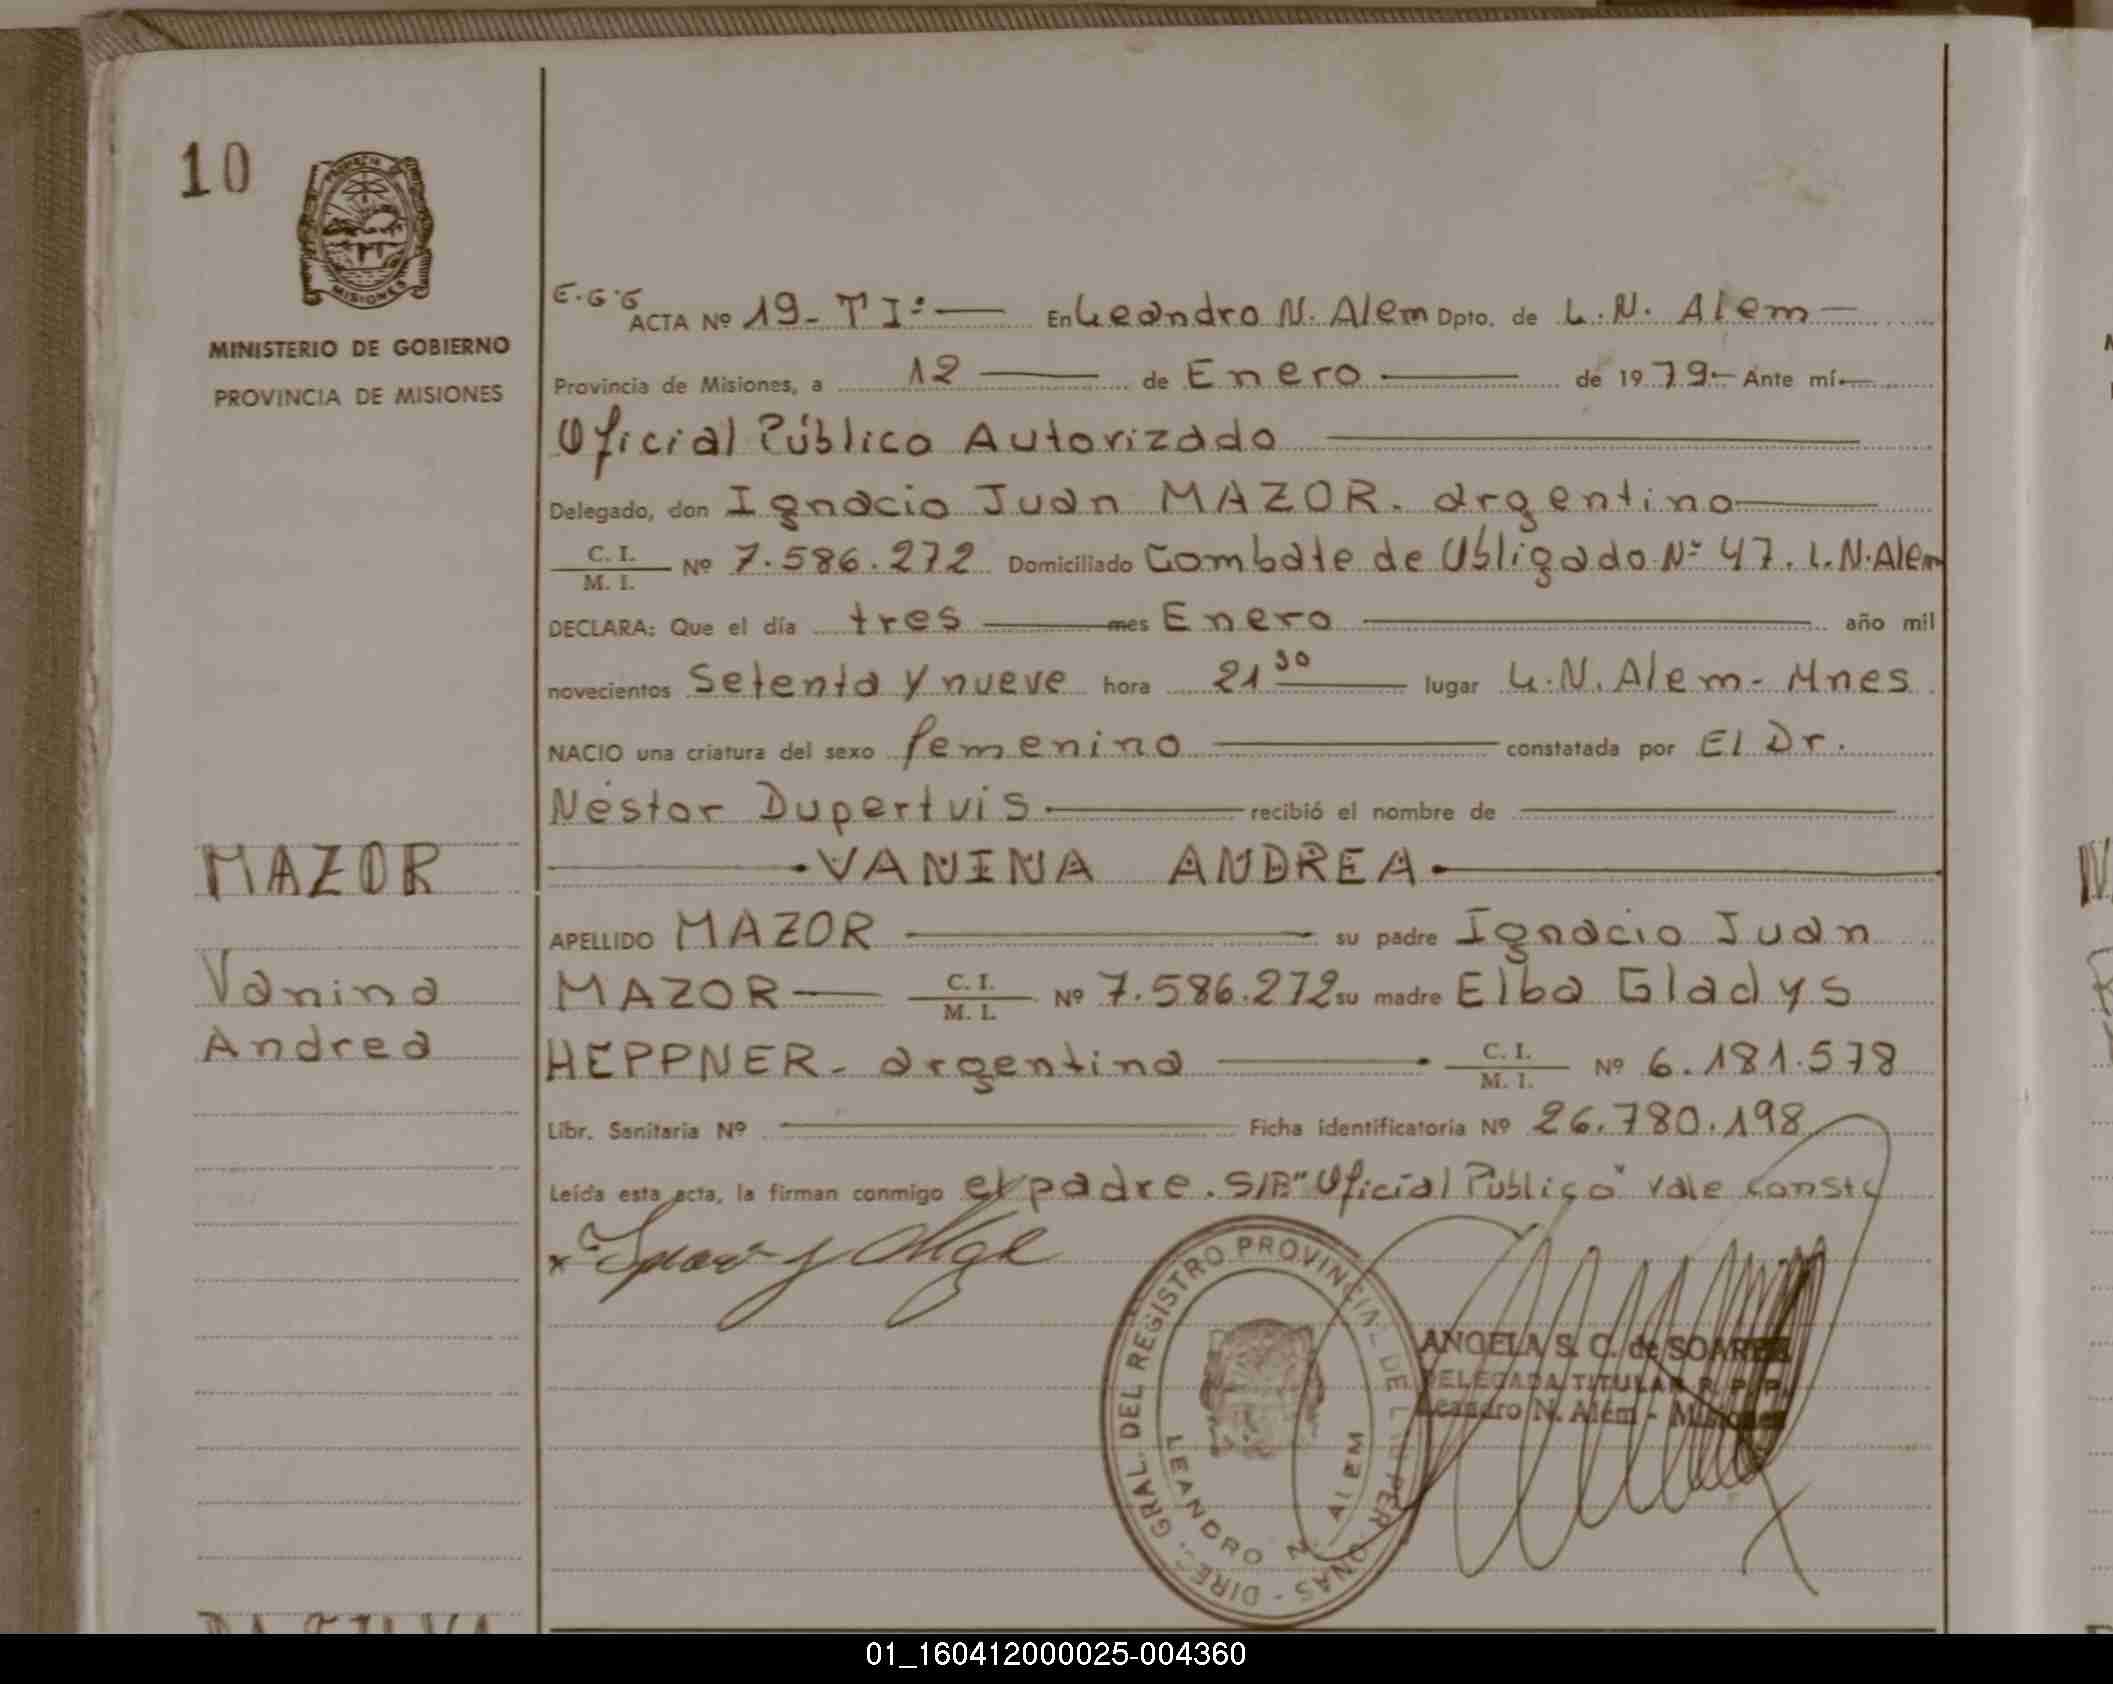 10
MISIONES
MINISTERIO DE GOBIERNO
PROVINCIA DE MISIONES
E.G.G
ACTA Nº 19-T I:— En Leandro N. Alem Dpto. de L.N. Alem—
Provincia de Misiones, a 12 — de Enero — de 19 79— Ante mí—
Oficial Público Autorizado —
Delegado, don Ignacio Juan MAZOR. argentino—
C. I. / M. I. Nº 7.586.272 Domiciliado Combate de Obligado Nº 47. L.N.Alem
DECLARA: Que el día tres — mes Enero — año mil
novecientos Setenta y nueve hora 21 30 — lugar L.N. Alem- Mnes
NACIO una criatura del sexo femenino — constatada por El Dr.
Néstor Dupertuis — recibió el nombre de —
— VANINA ANDREA —
MAZOR
Vanina
Andrea
APELLIDO MAZOR — su padre Ignacio Juan
MAZOR — C. I. / M. I. Nº 7.586.272 su madre Elba Gladys
HEPPNER- argentina — C. I. / M. I. Nº 6.181.578
Libr. Sanitaria Nº — Ficha identificatoria Nº 26.780.198
Leída esta acta, la firman conmigo el padre. S/R"Oficial Público" vale conste
GRAL. DEL REGISTRO PROVINCIAL DE
LEANDRO N. Alem
ANGELA S. C. de SOARES
DELEGADA TITULAR R. P. P.
Leandro N. Alem - Misiones
01_160412000025-004360